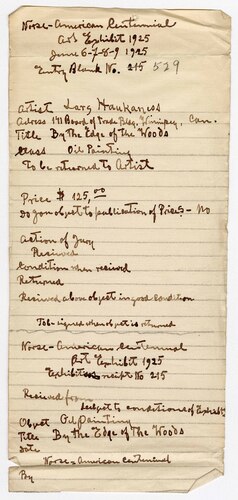 Norse-American Centennial
Art Exhibit 1925
June 6-7-8-9 1925
Entry Blank No. 215 529
Artist Lars Haukaness
Adress 141 Board of Trade Bldg. Winnipeg, Can.
Title By The Edge of the Woods
Class Oil Painting
To be returned to Artist
Price $ 125,00
do you object to publication of Prices - No
Action of Jury
Recieved
Condition when recieved
Returned
Recieved above object in good condition
To be signed when object is returned
Norse-American Centennial
Art Exhibit 1925
Exhibitors reciept No 215
Recieved from
subject to conditions of Exhibit
Object Oil Painting
Title By the Edge of The Woods
Date
Norse-American Centennial
By